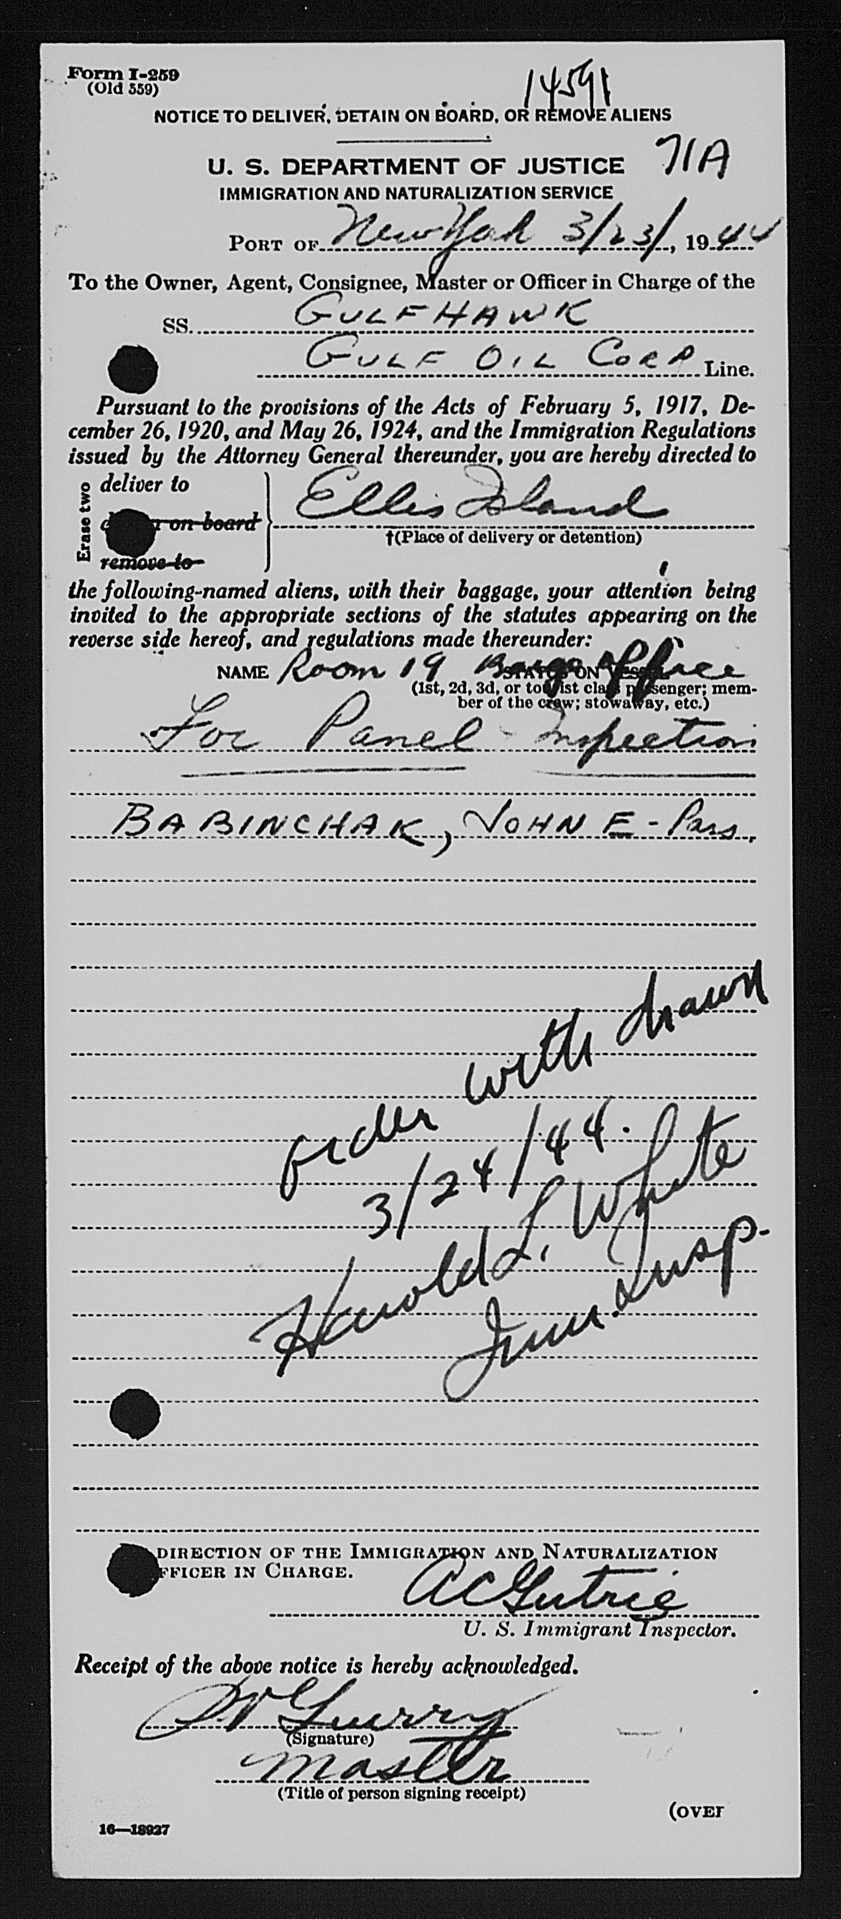 Form I-259
(Old 559)
14591
NOTICE TO DELIVER, DETAIN ON BOARD, OR REMOVE ALIENS
71A
U. S. DEPARTMENT OF JUSTICE
IMMIGRATION AND NATURALIZATION SERVICE
PORT OF New York 3/23/, 1944
To the Owner, Agent, Consignee, Master or Officer in Charge of the
SS. GULFHAWK
GULF OIL CORP Line.
Pursuant to the provisions of the Acts of February 5, 1917, De-
cember 26, 1920, and May 26, 1924, and the Immigration Regulations
issued by the Attorney General thereunder, you are hereby directed to
Erase two
deliver to
on board
remove to
Ellis Island
†(Place of delivery or detention)
the following-named aliens, with their baggage, your attention being
invited to the appropriate sections of the statutes appearing on the
reverse side hereof, and regulations made thereunder:
NAME Room 19 Barge Office
STATUS ON
(1st, 2d, 3d, or tourist class passenger; mem-
ber of the crew; stowaway, etc.)
For Panel Inspection
BABINCHAK, JOHN E - Pass.
order with drawn
3/24/44.
Harold L. White
Imm. Insp.
DIRECTION OF THE IMMIGRATION AND NATURALIZATION
OFFICER IN CHARGE.
U. S. Immigrant Inspector.
Receipt of the above notice is hereby acknowledged.
(Signature)
Master
(Title of person signing receipt)
(OVER
16—18927